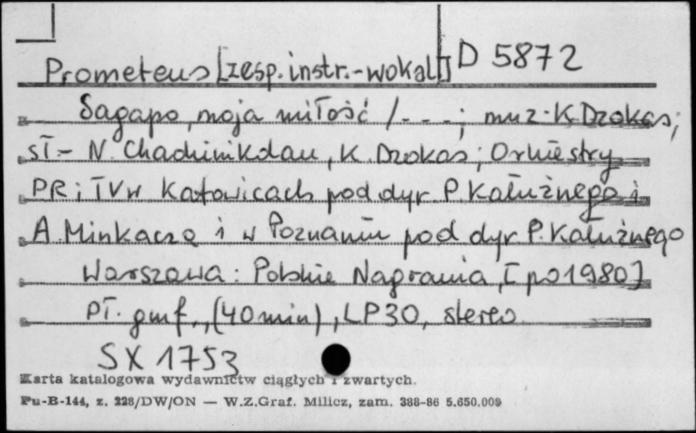 Prometeus [zesp. instr.-wokal.] D 5872
Sagapo, moja miłość / - - - ; muz. K. Dzokas;
sł.- N. Chadzinikolau, K. Dzokas; Orkiestry
PR i TV w Katowicach pod dyr. P. Kałużnego i
A. Minkacza i w Poznaniu pod dyr. P. Kałużnego
Warszawa: Polskie Nagrania, [po 1980]
pł. gmf., (40 min), LP30, stereo
SX 1753
Karta katalogowa wydawnictw ciągłych i zwartych.
Pu-B-144, z. 228/DW/ON — W.Z.Graf. Milicz, zam. 388-86 5.650.009